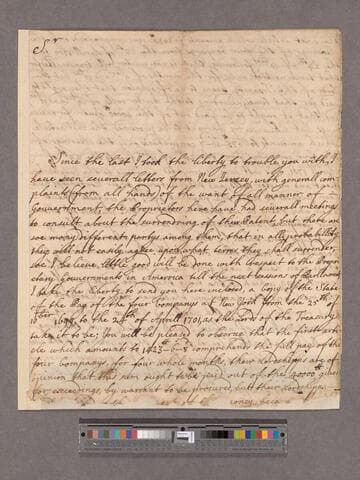 Sr
Since the last I took the liberty to trouble you with, I
have seen severall letters from New Jersey, with generall com-
plaints (from all hands) of the want of all manner of
Gouvernment; the Proprietors here have had severall meetings
to consult about the surrendring of their Patent, but there are
soe many different partys among them, that in all probability
they will not easily agree upon what terms they shall surrender,
soe I believe, little good will be done with respect to the Propri-
etary governments in America till the next sessions of Parliament.
I take the liberty to send you here inclosed a Copy of the State
of the Pay of the four Companys at New York from the 25th of
to the 24th of Aprill 1701, as the Lords of the Treasury
take it to be; You will be pleased to observe that the first arti-
cle which amounts to 1423 comprehends the full pay of the
four Companys, for four whole months, their Lordships are of
opinion that this sum ought to be paid out of the given
for exceedings by warrant to be procured, but their Lordships